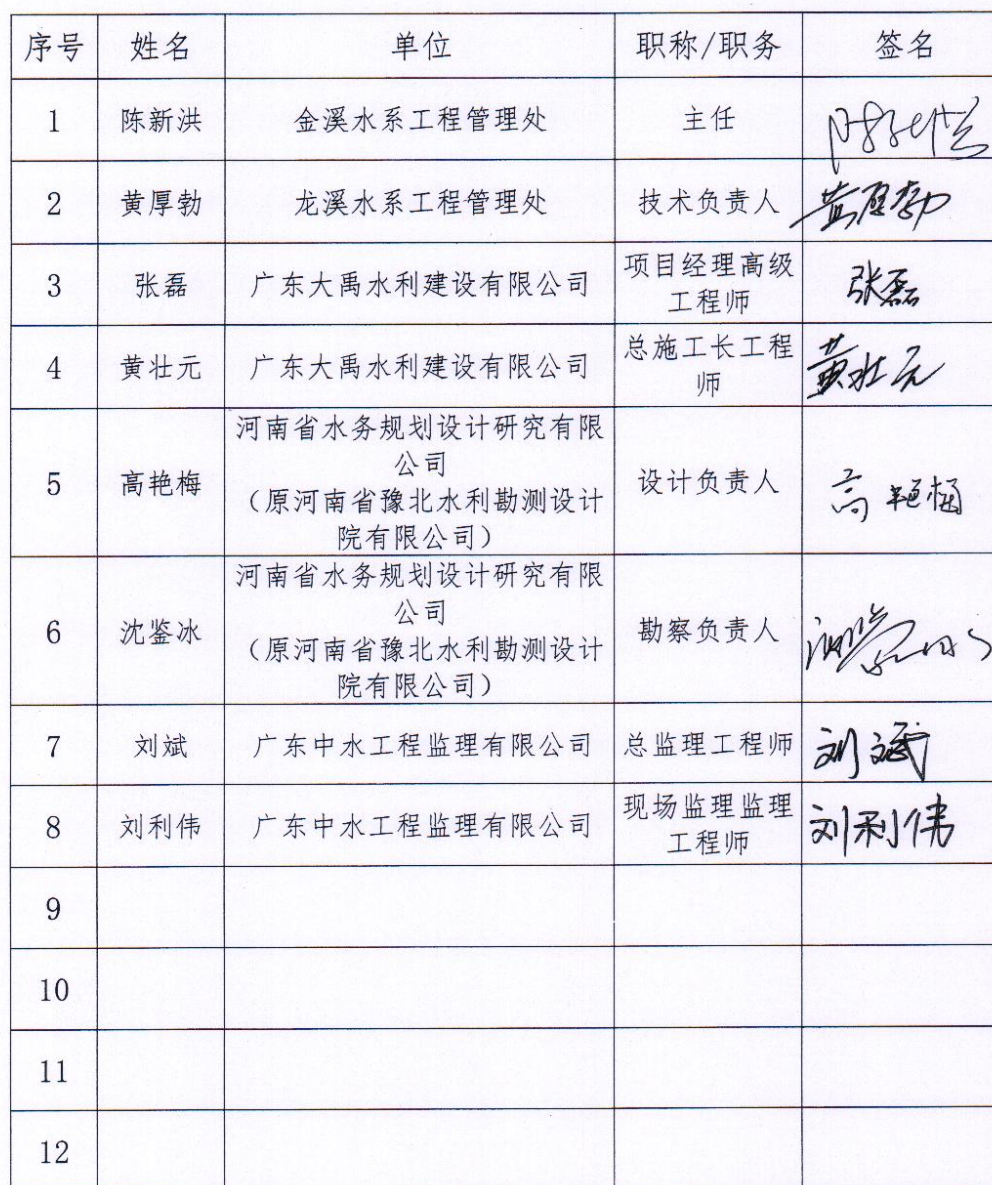 序号 姓名 单位 职称/职务 签名
1 陈新洪 金溪水系工程管理处 主任
2 黄厚勃 龙溪水系工程管理处 技术负责人 黄厚勃
3 张磊 广东大禹水利建设有限公司 项目经理高级
工程师 张磊
4 黄壮元 广东大禹水利建设有限公司 总施工长工程
师 黄壮元
5 高艳梅 河南省水务规划设计研究有限
公司
（原河南省豫北水利勘测设计
院有限公司） 设计负责人 高艳梅
6 沈鉴冰 河南省水务规划设计研究有限
公司
（原河南省豫北水利勘测设计
院有限公司） 勘察负责人
7 刘斌 广东中水工程监理有限公司 总监理工程师 刘斌
8 刘利伟 广东中水工程监理有限公司 现场监理监理
工程师 刘利伟
9
10
11
12